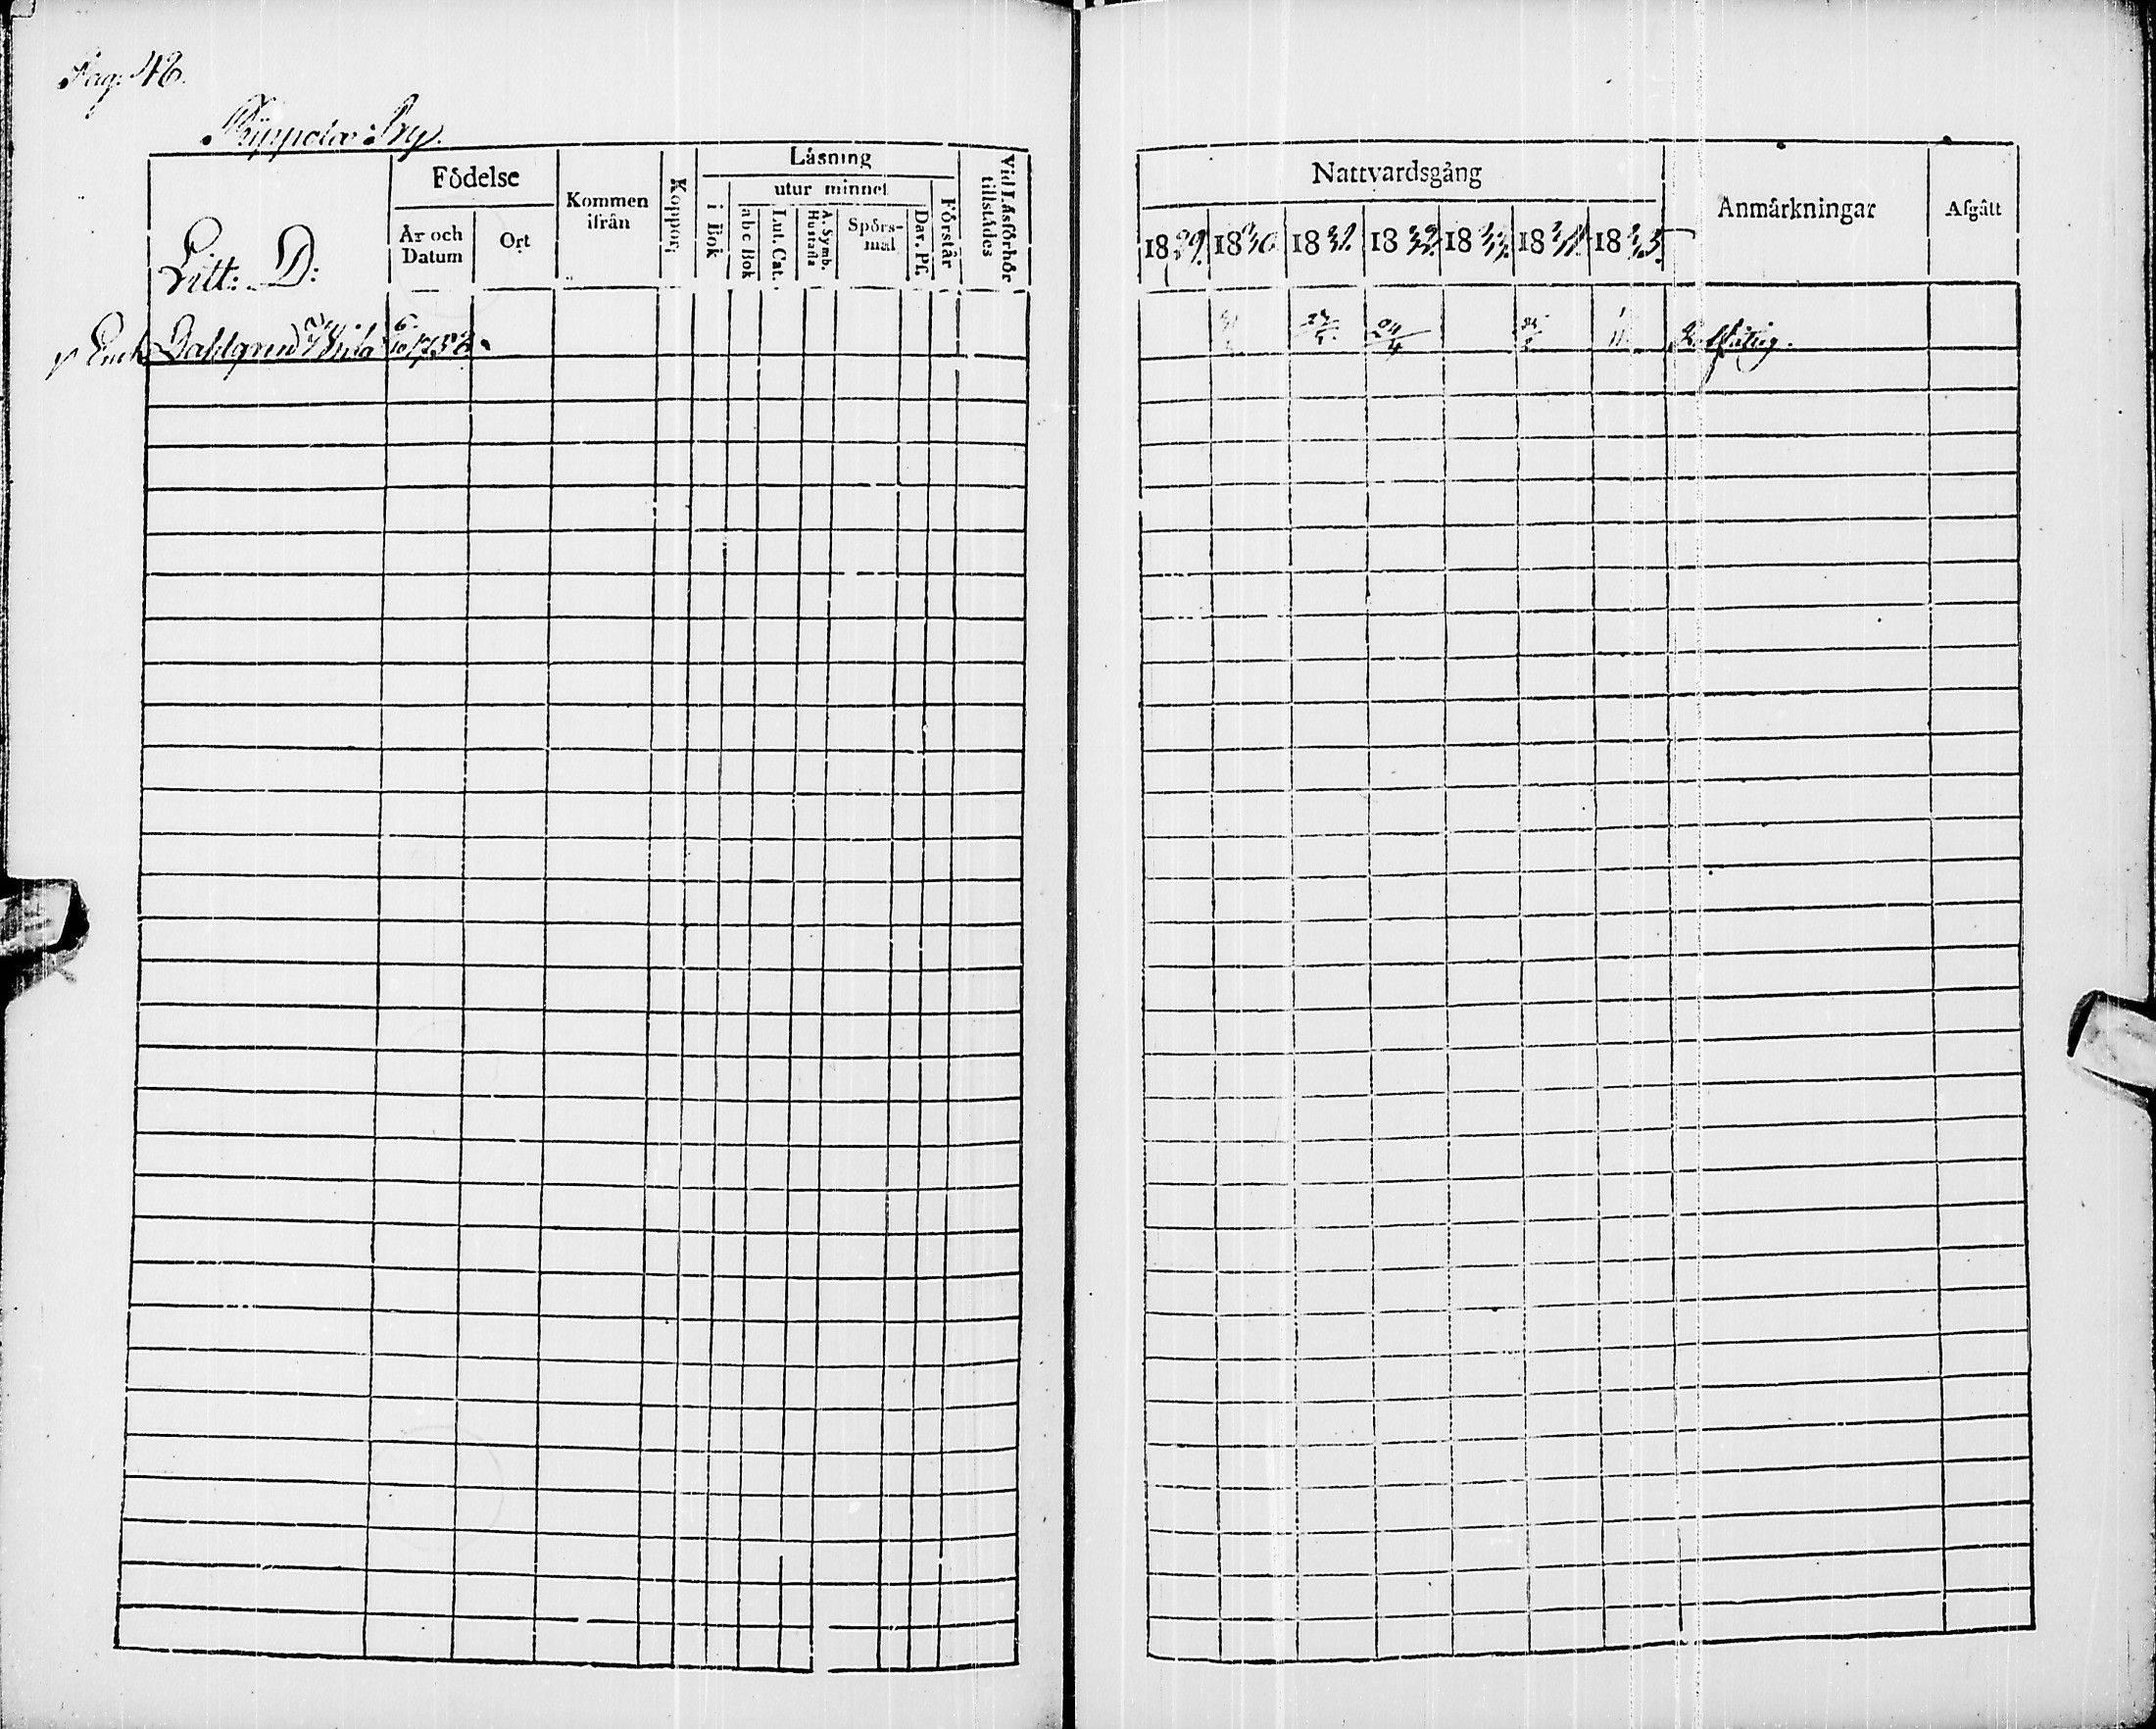 Pag. 48.
Kyppola By.
Litt: D:
Födelse
År och Datum
Ort
Kommen ifrån
Koppor
Låsning
i Bok
utur minnet
abc Bok
Lut. Cat.
A. Symb. Hustafla
Spörs-mål
Dav. Ps.
Förstår
Vid Låsförhör tillstådes
Enk. Dahlgren 6/10 1758.
Nattvardsgång
1829. 1830 1831. 1832. 1833. 1834. 1835.
Anmårkningar
Afgått
24/4